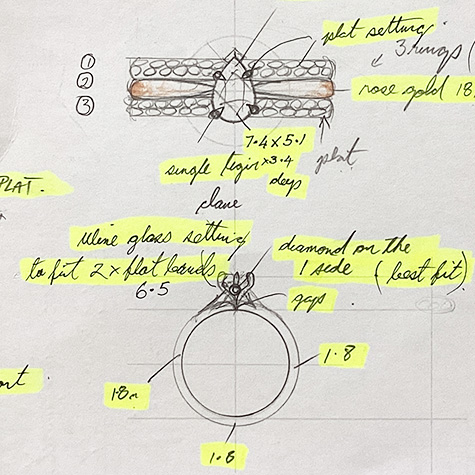 plat setting
3 rings (
①
②
③
rose gold 18
7.4 x 5.1
x 3.4
deep
single
plat
PLAT.
wine glass setting
to fit 2 x flat bands
6.5
diamond on the
1 side (best fit)
gaps
1.8
1.8
1.8